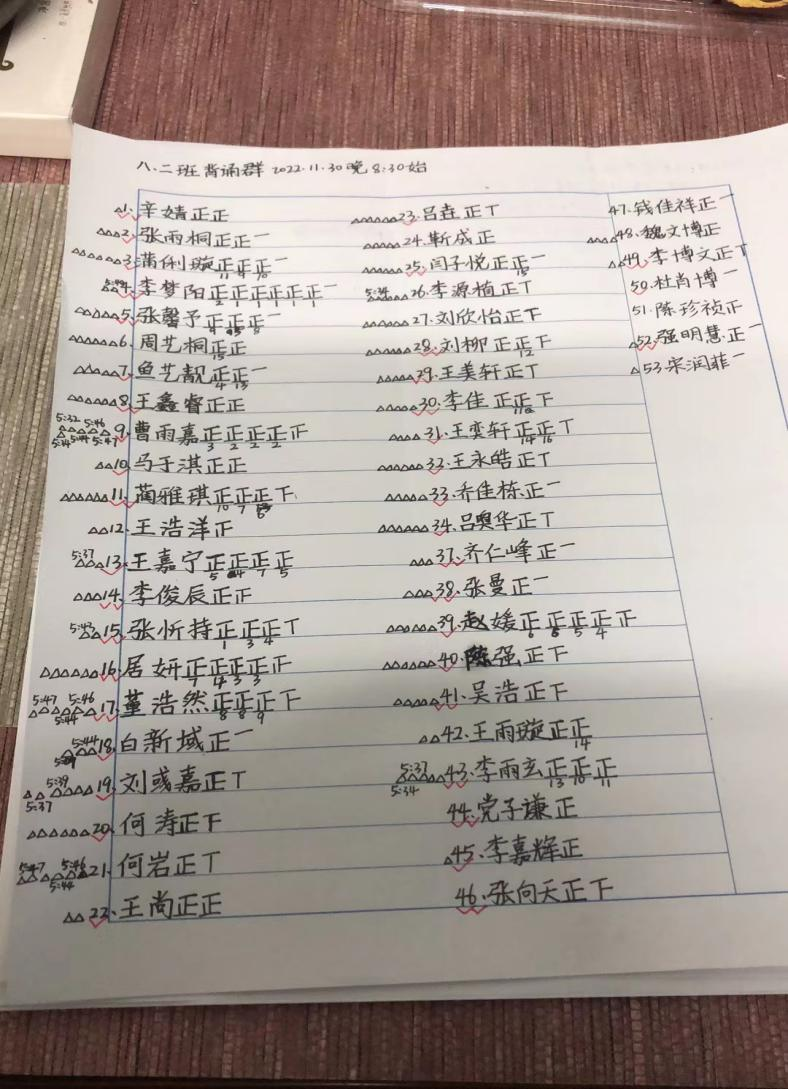 八.二班背诵群 2022.11.30晚8:30始
△1.辛婧正正
△△△2.张雨桐正正一
△△△△△△3.蒲俐璇正正正
11 4 15
△△4.李梦阳正正正正正正一
2 1 1 1 1 1
△△△△5.张馨予正正正一
△△△△△△6.周艺桐正正
15
△△△△△7.鱼艺靓正正一
4 13
△△△△△8.王鑫睿正正
5:32 5:46
9.曹雨嘉正正正正正
5:34 5:44 5:47
3 2 2 2
△△10.马于淇正正
△△△△△△11.蔺雅琪正正正下
10 7 6
△△12.王浩洋正
5:37
△△△13.王嘉宁正正正正
△△△14.李俊辰正正
△△15.张忻持正正正丅
1 3 4
△△△△△△16.居妍正正正正正
7 4 3 3
5:47 5:46
17.董浩然正正正下
5:44
8 8 9
5:44
18.白新域正一
5:39
19.刘彧嘉正丅
5:37
△△△△△△20.何涛正下
5:47 5:46
21.何岩正丅
5:44
△△22.王尚正正
△△△△△△23.吕垚正丅
△△△△△24.靳成正
△△△△△25.闫子悦正正一
15
26.李源植正丅
△△△△27.刘欣怡正下
△△△△△28.刘柳正正下
12
△△△△△29.王美轩正丅
△△△△30.李佳正正下
△△△△31.王奕轩正正丅
14 16
△△△△△△32.王永皓正丅
△△△△△33.乔佳栋正一
△△△△△△34.吕奥华正丅
△△△37.齐仁峰正一
△△△38.张曼正一
△△△△△△39.赵媛正正正正正
6 6 5 4
△△△△△△40.陈强正下
△△△△41.吴浩正下
△△42.王雨璇正正
14
5:37
43.李雨玄正正正
5:34
13 10 11
44.党子谦正
△45.李嘉辉正
46.张向天正下
47.钱佳祥正一
△△△△48.魏文博正
△△49.李博文正丅
50.杜肖博一
51.陈珍祯正
△52.强明慧正一
△53.宋润菲一